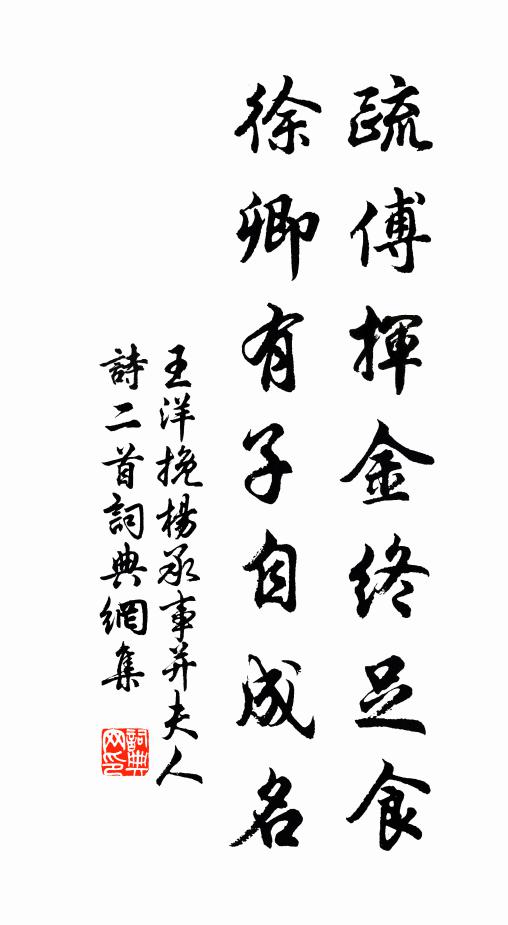 疏傅揮金終足食
徐卿有子自成名
王洋挽楊承事并夫人
詩二首詞典網集
詞典
网印